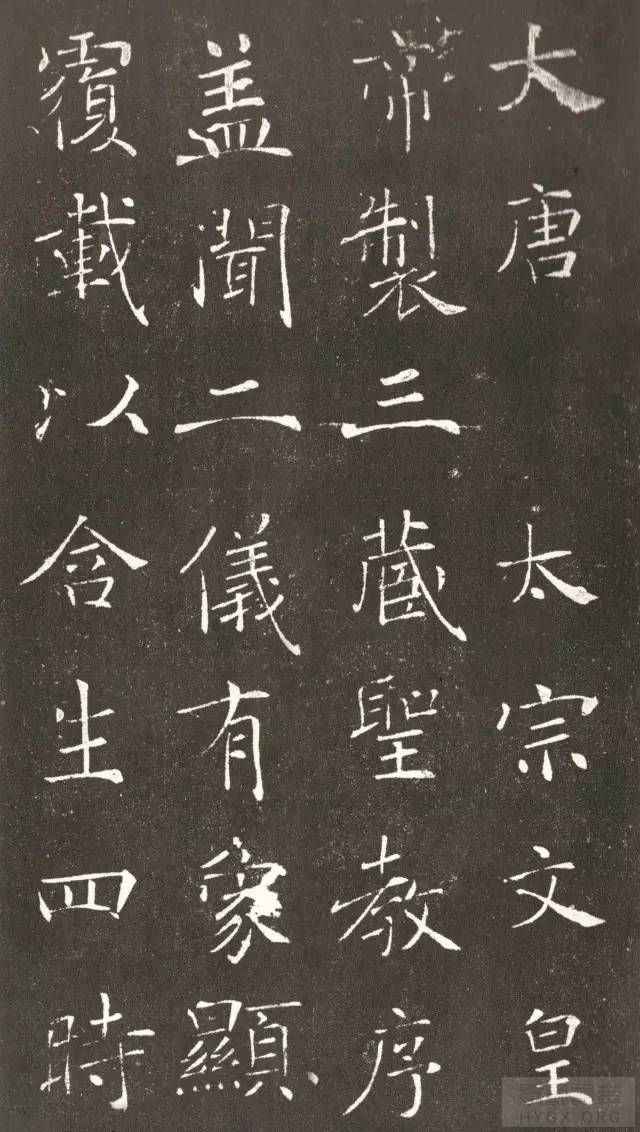 大唐 太宗文皇
帝製三藏聖教序
盖聞二儀有象顯
覆載以含生四時
HYGX.ORG